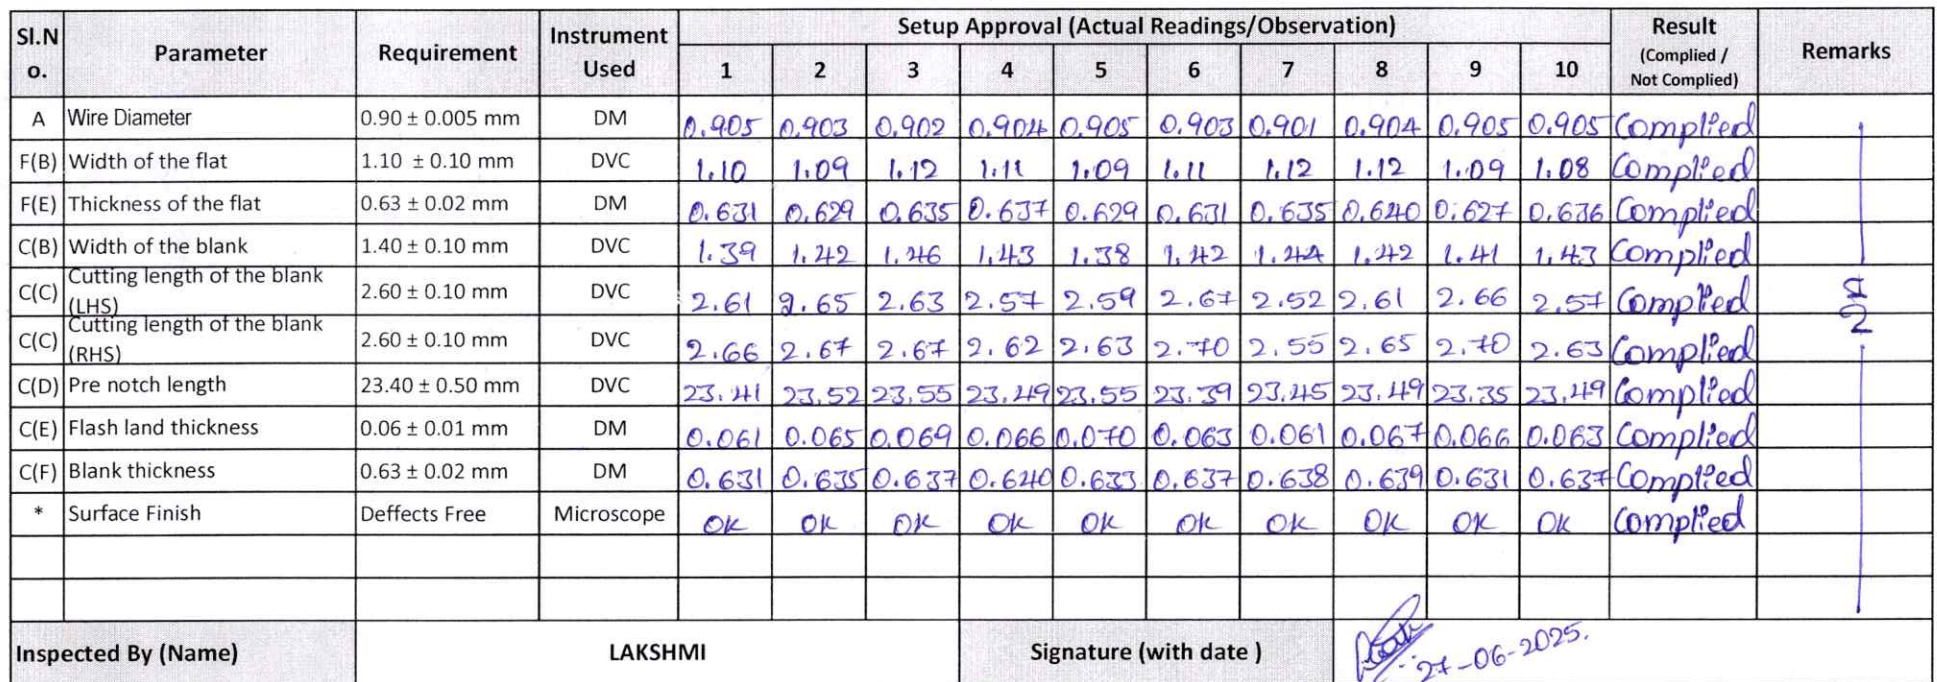 Sl.No. Parameter Requirement Instrument Used Setup Approval (Actual Readings/Observation) Result (Complied / Not Complied) Remarks
1 2 3 4 5 6 7 8 9 10
A Wire Diameter 0.90 ± 0.005 mm DM 0.905 0.903 0.902 0.904 0.905 0.903 0.901 0.904 0.905 0.905 Complied
F(B) Width of the flat 1.10 ± 0.10 mm DVC 1.10 1.09 1.12 1.11 1.09 1.11 1.12 1.12 1.09 1.08 Complied
F(E) Thickness of the flat 0.63 ± 0.02 mm DM 0.631 0.629 0.635 0.637 0.629 0.631 0.635 0.640 0.627 0.636 Complied
C(B) Width of the blank 1.40 ± 0.10 mm DVC 1.39 1.42 1.46 1.43 1.38 1.42 1.44 1.42 1.41 1.43 Complied
C(C) Cutting length of the blank (LHS) 2.60 ± 0.10 mm DVC 2.61 2.65 2.63 2.57 2.59 2.67 2.52 2.61 2.66 2.57 Complied
C(C) Cutting length of the blank (RHS) 2.60 ± 0.10 mm DVC 2.66 2.67 2.67 2.62 2.63 2.70 2.55 2.65 2.70 2.63 Complied
C(D) Pre notch length 23.40 ± 0.50 mm DVC 23.41 23.52 23.55 23.49 23.55 23.39 23.45 23.49 23.35 23.49 Complied
C(E) Flash land thickness 0.06 ± 0.01 mm DM 0.061 0.065 0.069 0.066 0.070 0.063 0.061 0.067 0.066 0.063 Complied
C(F) Blank thickness 0.63 ± 0.02 mm DM 0.631 0.635 0.637 0.640 0.633 0.637 0.638 0.639 0.631 0.637 Complied
* Surface Finish Deffects Free Microscope OK OK OK OK OK OK OK OK OK OK Complied
Inspected By (Name) LAKSHMI Signature (with date ) 27-06-2025.